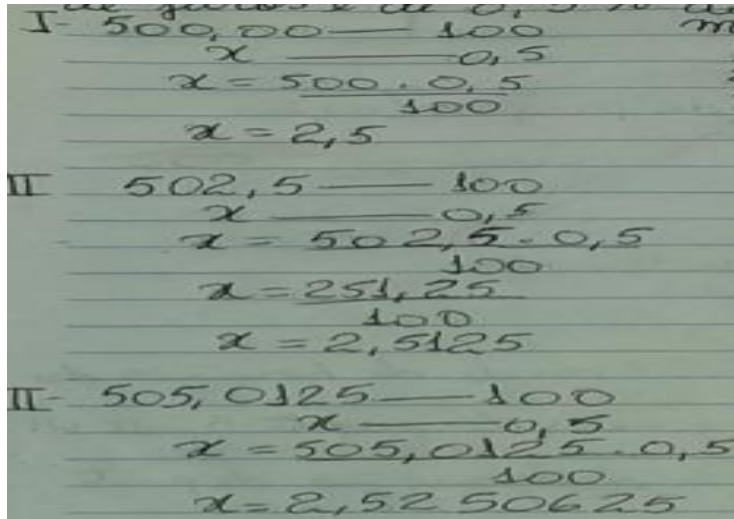 de juros é de 0,5 %
I- 500,00 — 100
x — 0,5
x = 500 . 0,5
100
x = 2,5
II 502,5 — 100
x — 0,5
x = 502,5 . 0,5
100
x = 251,25
100
x = 2,5125
II- 505,0125 — 100
x — 0,5
x = 505,0125 . 0,5
100
x = 2,5250625